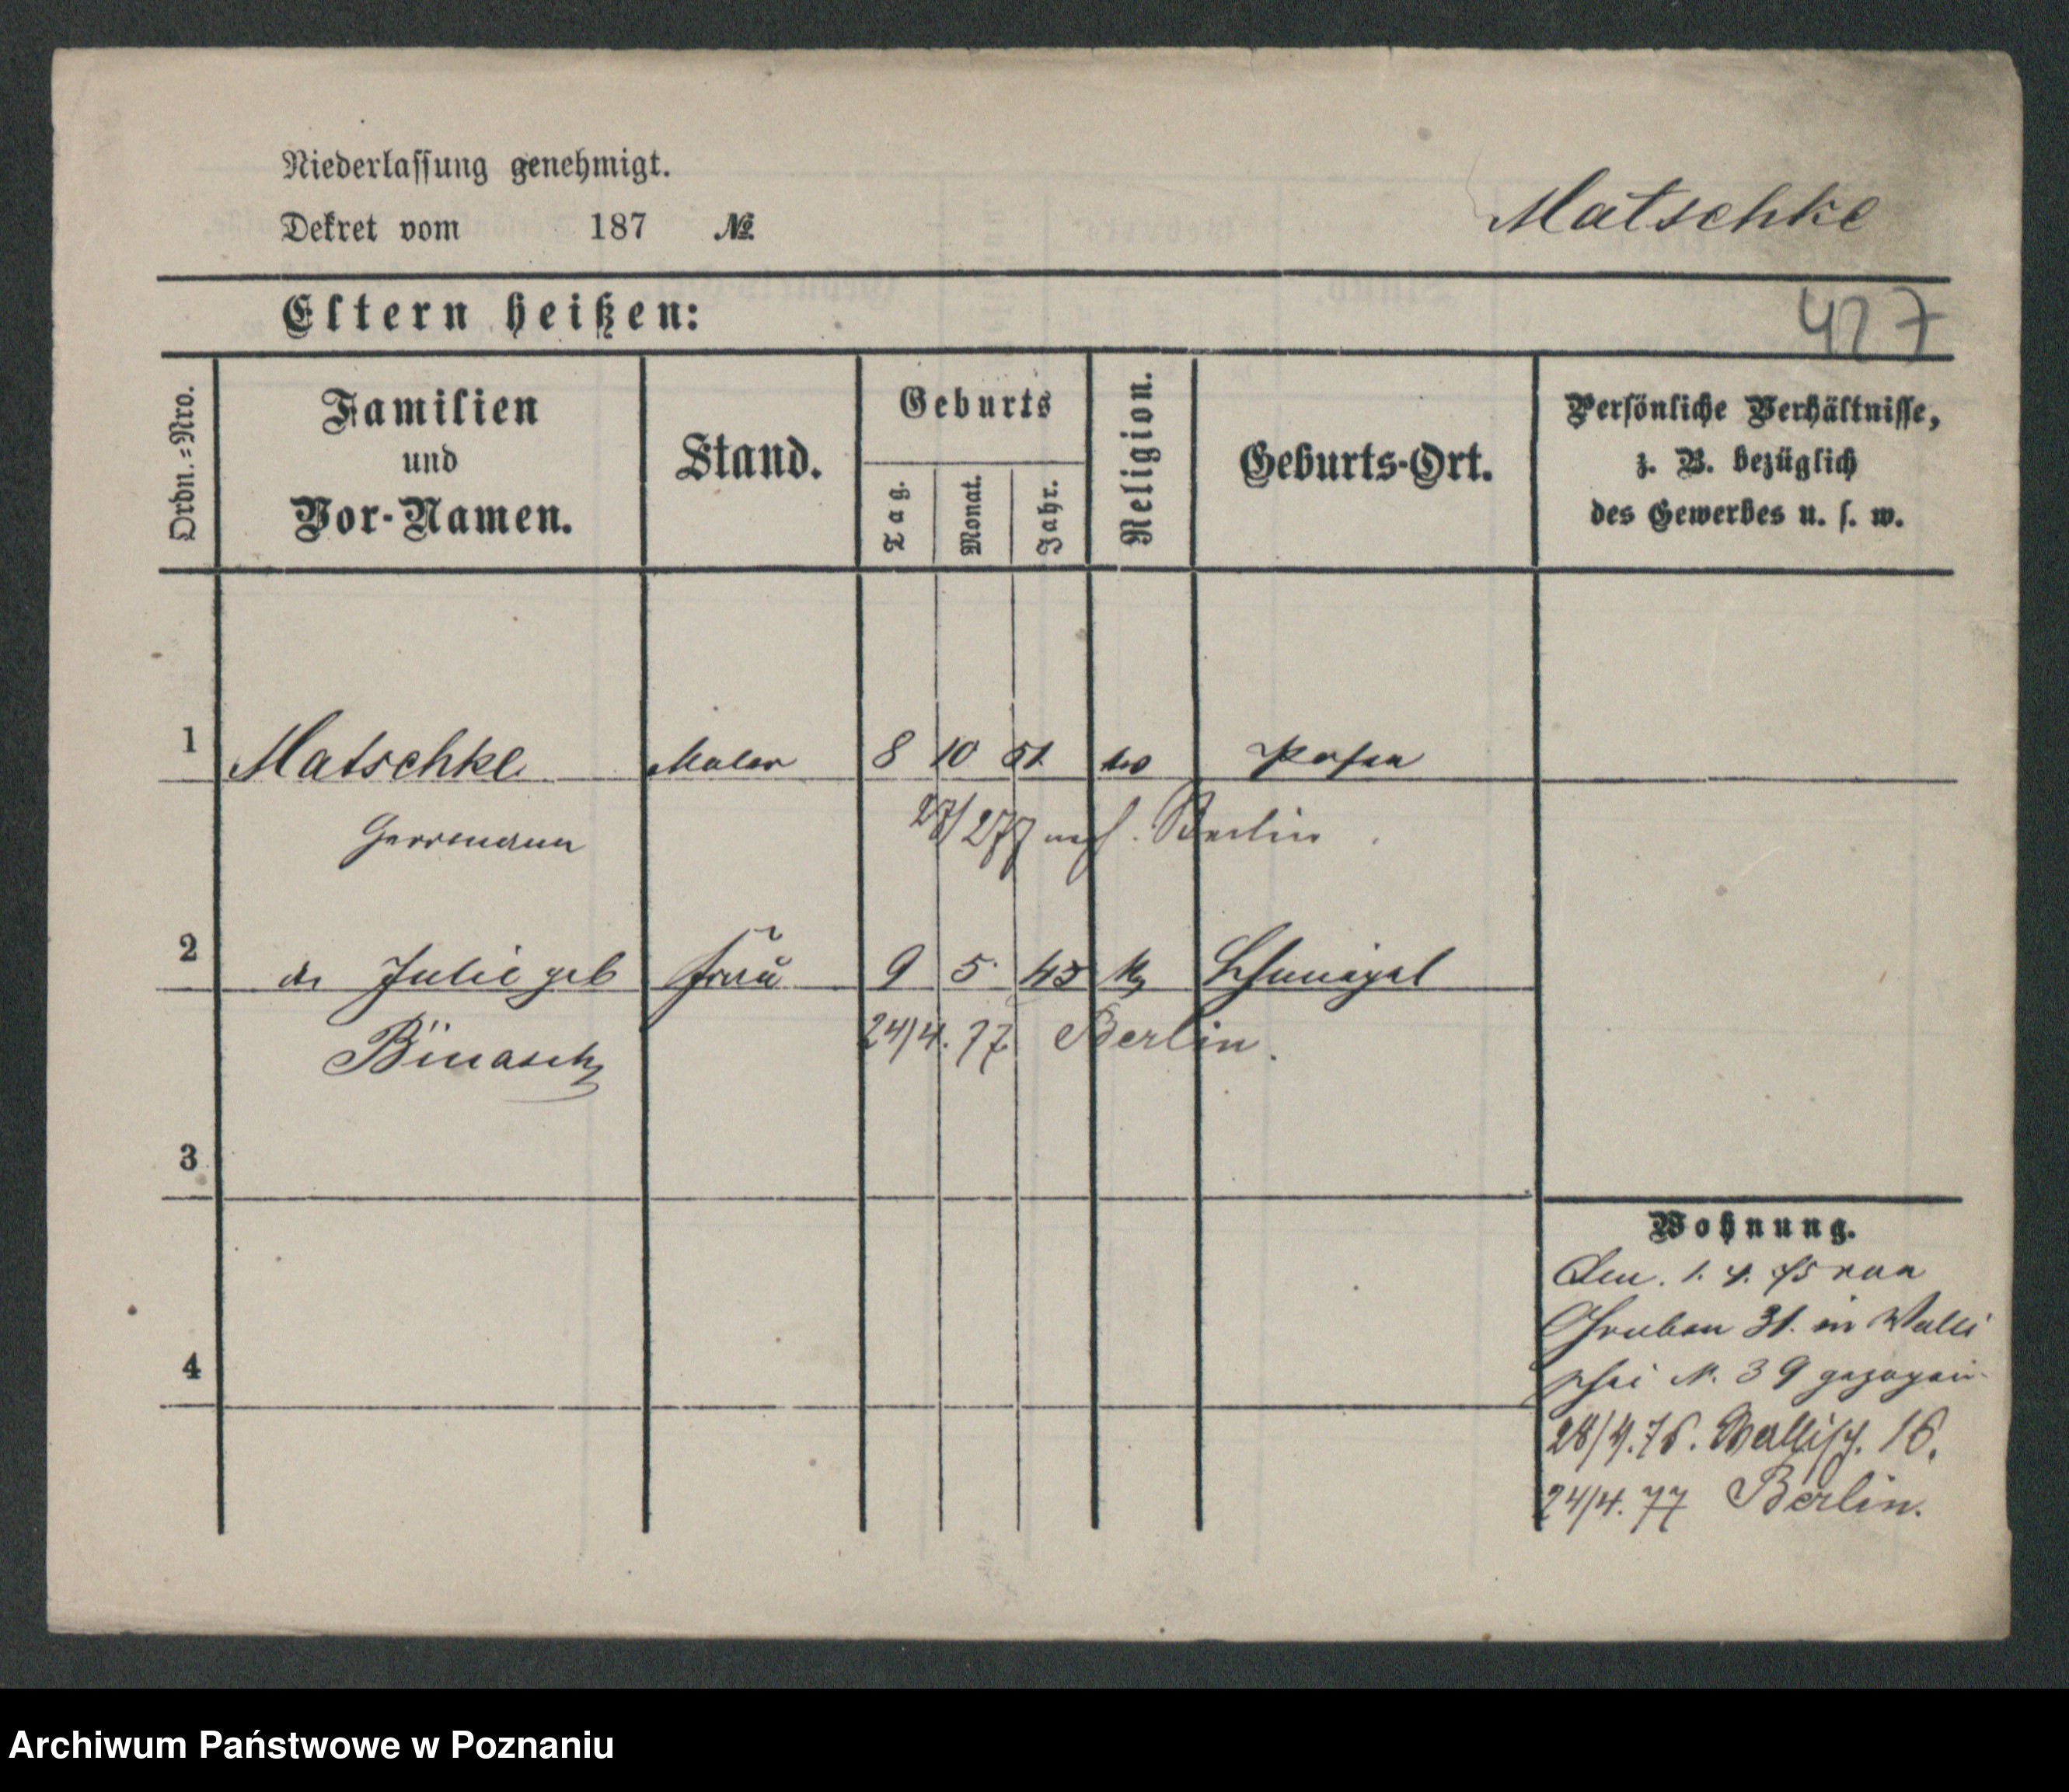 Niederlassung genehmigt.
Dekret vom 187 №
Matschke
Eltern heißen:
427
Ordn.-Nro.
Familien
und
Vor-Namen.
Stand.
Geburts
Tag.
Monat.
Jahr.
Religion.
Geburts-Ort.
Persönliche Verhältnisse,
z. B. bezüglich
des Gewerbes u. s. w.
1 Matschke Maler 8 10 51 Posen
Herrmann 27/2 77 Berlin
2 Julie geb Frau 9 5 45 Schmiegel
24/4. 77. Berlin.
3
4
Wohnung.
Den. 1. 4. 75 von
Graben 31. in Walli
schei N. 39 gezogen
28/4.76. Wallisch. 16.
24/4. 77 Berlin.
Archiwum Państwowe w Poznaniu